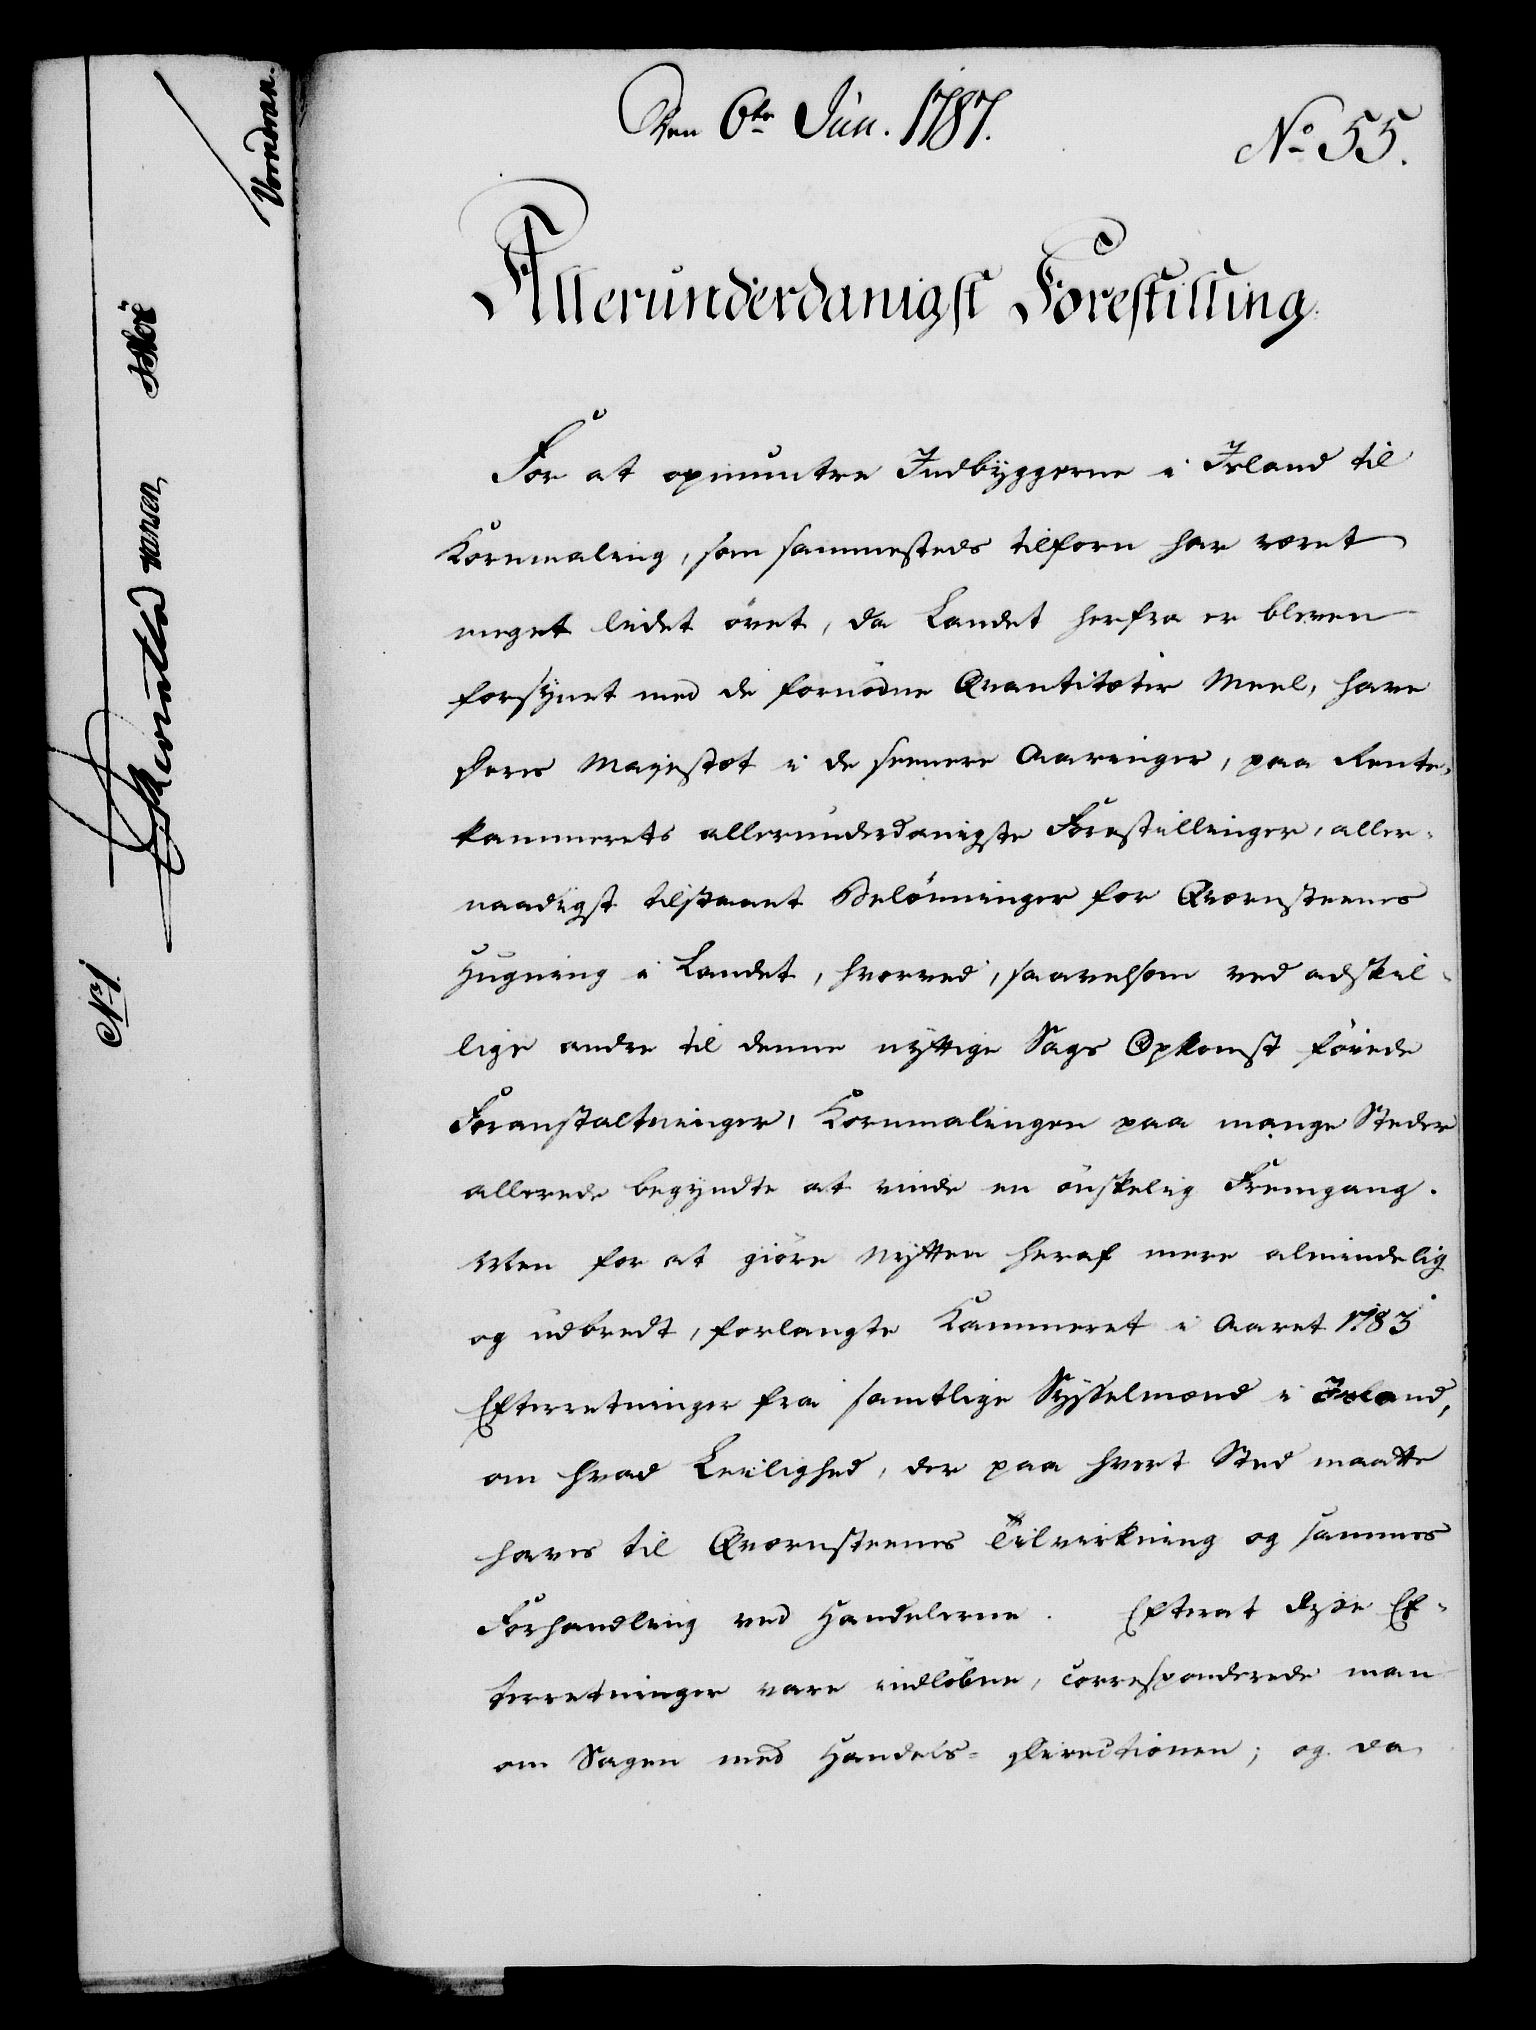 Den 6te Jun. 1787.
No 55.
Allerunderdanigst Forestilling.
For at opmuntre Indbyggerne i Island til
Kornmaling, som sammesteds tilforn har været
meget lidet övet, da Landet herfra er bleven
forsÿnet med de fornödne Qvantitæter Meel, have
Deres Majestæt i de seenere Aaringer, paa Rente-
kammerets allerunderdanigste Forestillinger, aller-
naadigst tilstaaet Belönninger for Qværnsteenes
Hugning i Landet, hvorved, saavelsom ved adskil-
lige andre til denne nÿttige Sags Opkomst föiede
Foranstaltninger, Kornmalingen paa mange Steder
allerede begÿndte at vinde en önskelig Fremgang.
Men for at giöre Nÿtten heraf mere almindelig
og udbredt, forlangte Kammeret i Aaret 1783
Efterretninger fra samtlige Sÿsselmænd i Island,
om hvad Leilighed, der paa hvert Sted maatte
haves til Qværnsteenes Tilvirkning og sammes
Forhandling ved Handelerne. Efterat disse Ef-
terretninger vare indlöbne, corresponderede man
om Sagen med Handels-Directionen; og da
No 1